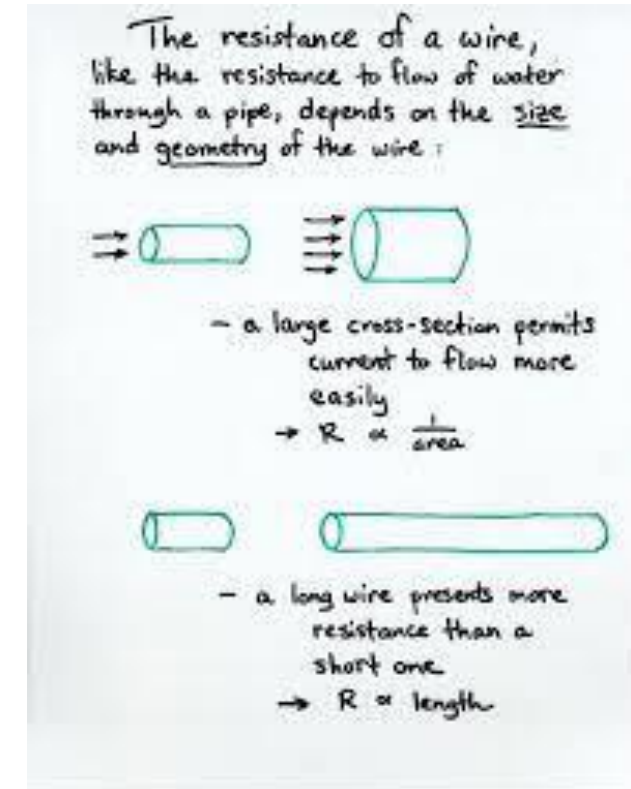 The resistance of a wire,
like the resistance to flow of water
through a pipe, depends on the size
and geometry of the wire :
- a large cross-section permits
current to flow more
easily
→ R ∝ 1/area
- a long wire presents more
resistance than a
short one
→ R ∝ length